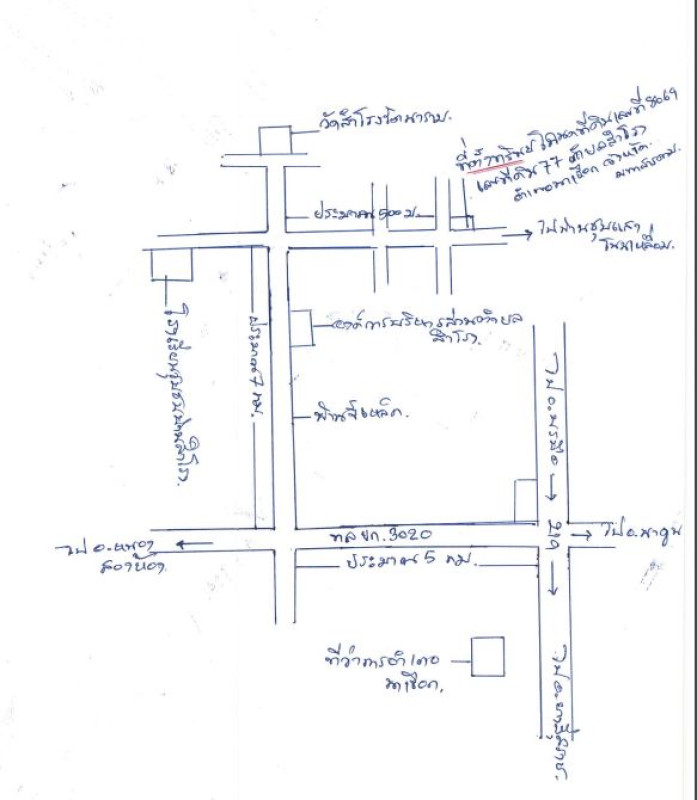 วัดสำโรงโฒนาราม.
ที่ตั้งทรัพย์ โฉนดที่ดินเลขที่ 8069
เลขที่ดิน 77 ตำบลสำโรง
อำเภอนาเชือก จังหวัด
มหาสารคาม.
ประมาณ 500 ม.
ไปบ้านชุมแสง
โนนเหลื่อม.
โรงเรียนชุมชนบ้านสำโรง.
ประมาณ 7 กม.
องค์การบริหารส่วนตำบล
สำโรง.
บ้านขี้เหล็ก.
ไป อ.บรบือ
ทล ขก. 3020
219
ไป อ.นาดูน
ไป อ.หนอง
สองห้อง.
ประมาณ 5 กม.
ที่ว่าการอำเภอ
นาเชือก.
ไป อ.พยัคฆภูมิ.